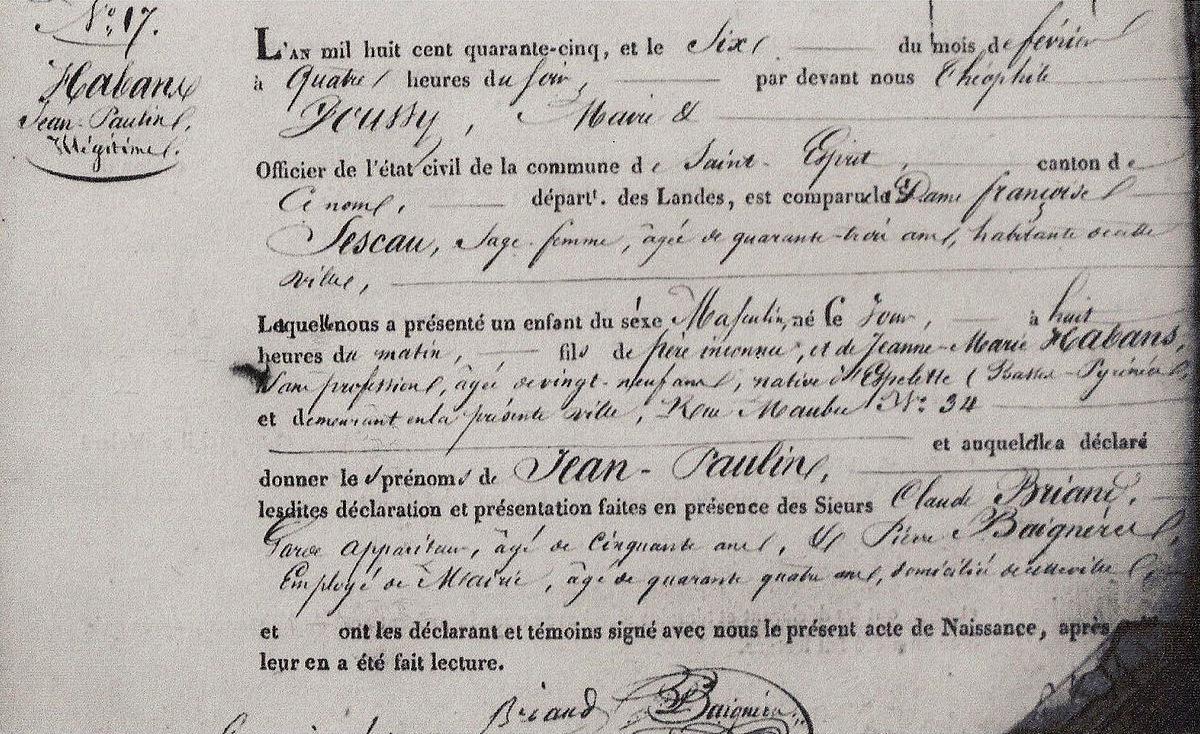 N.° 17.
Habans
Jean-Paulin,
Illégitime.
L'AN mil huit cent quarante-cinq, et le Six du mois de février
à Quatre heures du soir, par devant nous Théophile
Doussy, Maire &
Officier de l'état civil de la commune de Saint-Esprit, canton de
Ce nom, départ. des Landes, est comparue la Dame françoise
Sescau, Sage-femme, âgée de quarante-trois ans, habitante de cette
ville,
Laquelle nous a présenté un enfant du sexe Masculin, né Ce Jour, à huit
heures du matin, fils de père inconnu, et de Jeanne-Marie Habans,
Sans profession, âgée de vingt-neuf ans, native d'Espelette (Basses-Pyrénées)
et demeurant en la présente ville, Rue Maubec N.° 34
et auquel elle a déclaré
donner les prénoms de Jean-Paulin,
lesdites déclaration et présentation faites en présence des Sieurs Claude Briand,
Garde appariteur, âgé de Cinquante ans, & Pierre Baignères,
Employé de Mairie, âgé de quarante quatre ans, domiciliés de cette ville
et ont les déclarant et témoins signé avec nous le présent acte de Naissance, après
leur en a été fait lecture.
Briand Baignères